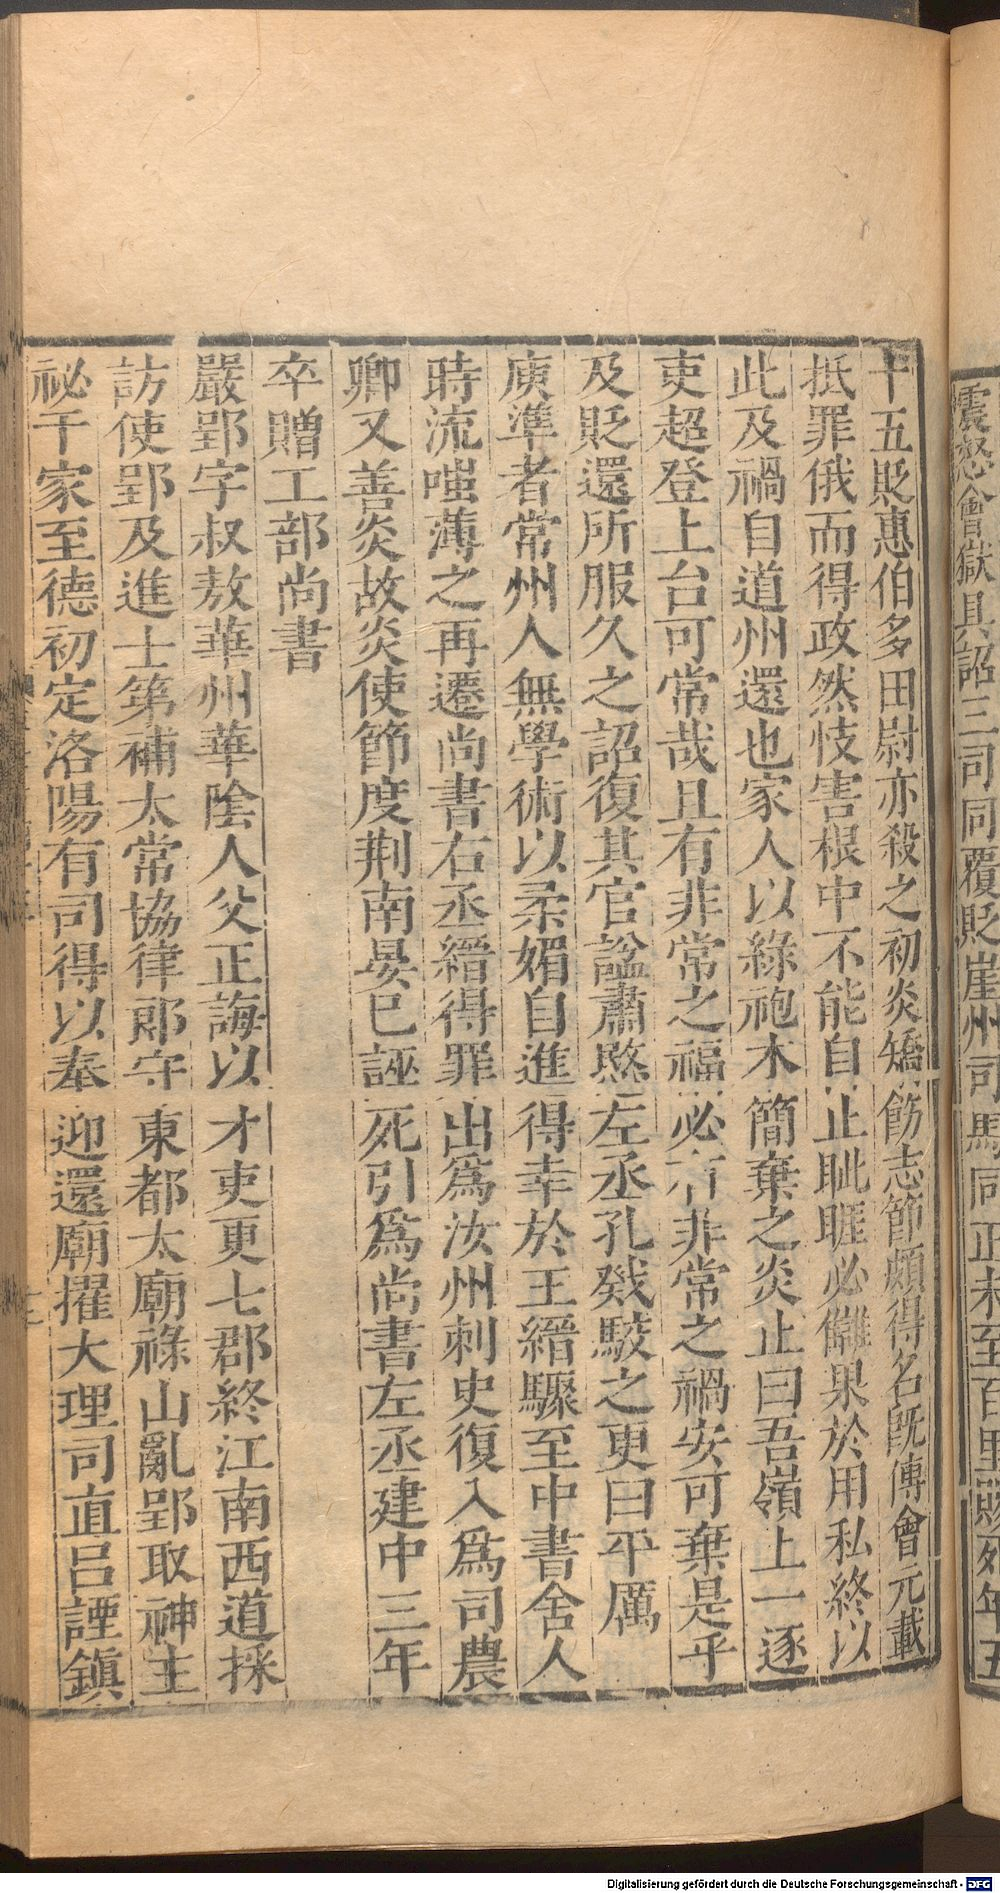 震怒會獄具詔三司同覆貶崖州司馬同正未至百里賜死年五
十五貶惠伯多田尉亦殺之初炎矯飭志節頗得名旣傅會元載
抵罪俄而得政然忮害根中不能自止眦睚必讎果於用私終以
此及禍自道州還也家人以綠袍木簡棄之炎止曰吾嶺上一逐
吏超登上台可常哉且有非常之福必有非常之禍安可棄是乎
及貶還所服久之詔復其官謚肅愍左丞孔戣駁之更曰平厲
庾準者常州人無學術以柔媚自進得幸於王縉驟至中書舍人
時流嗤薄之再遷尚書右丞縉得罪出爲汝州刺史復入爲司農
卿又善炎故炎使節度荆南晏已誣死引爲尚書左丞建中三年
卒贈工部尚書
嚴郢字叔敖華州華陰人父正誨以才吏更七郡終江南西道採
訪使郢及進士第補太常協律郎守東都太廟祿山亂郢取神主
祕于家至德初定洛陽有司得以奉迎還廟擢大理司直呂諲鎮
Digitalisierung gefördert durch die Deutsche Forschungsgemeinschaft - DFG